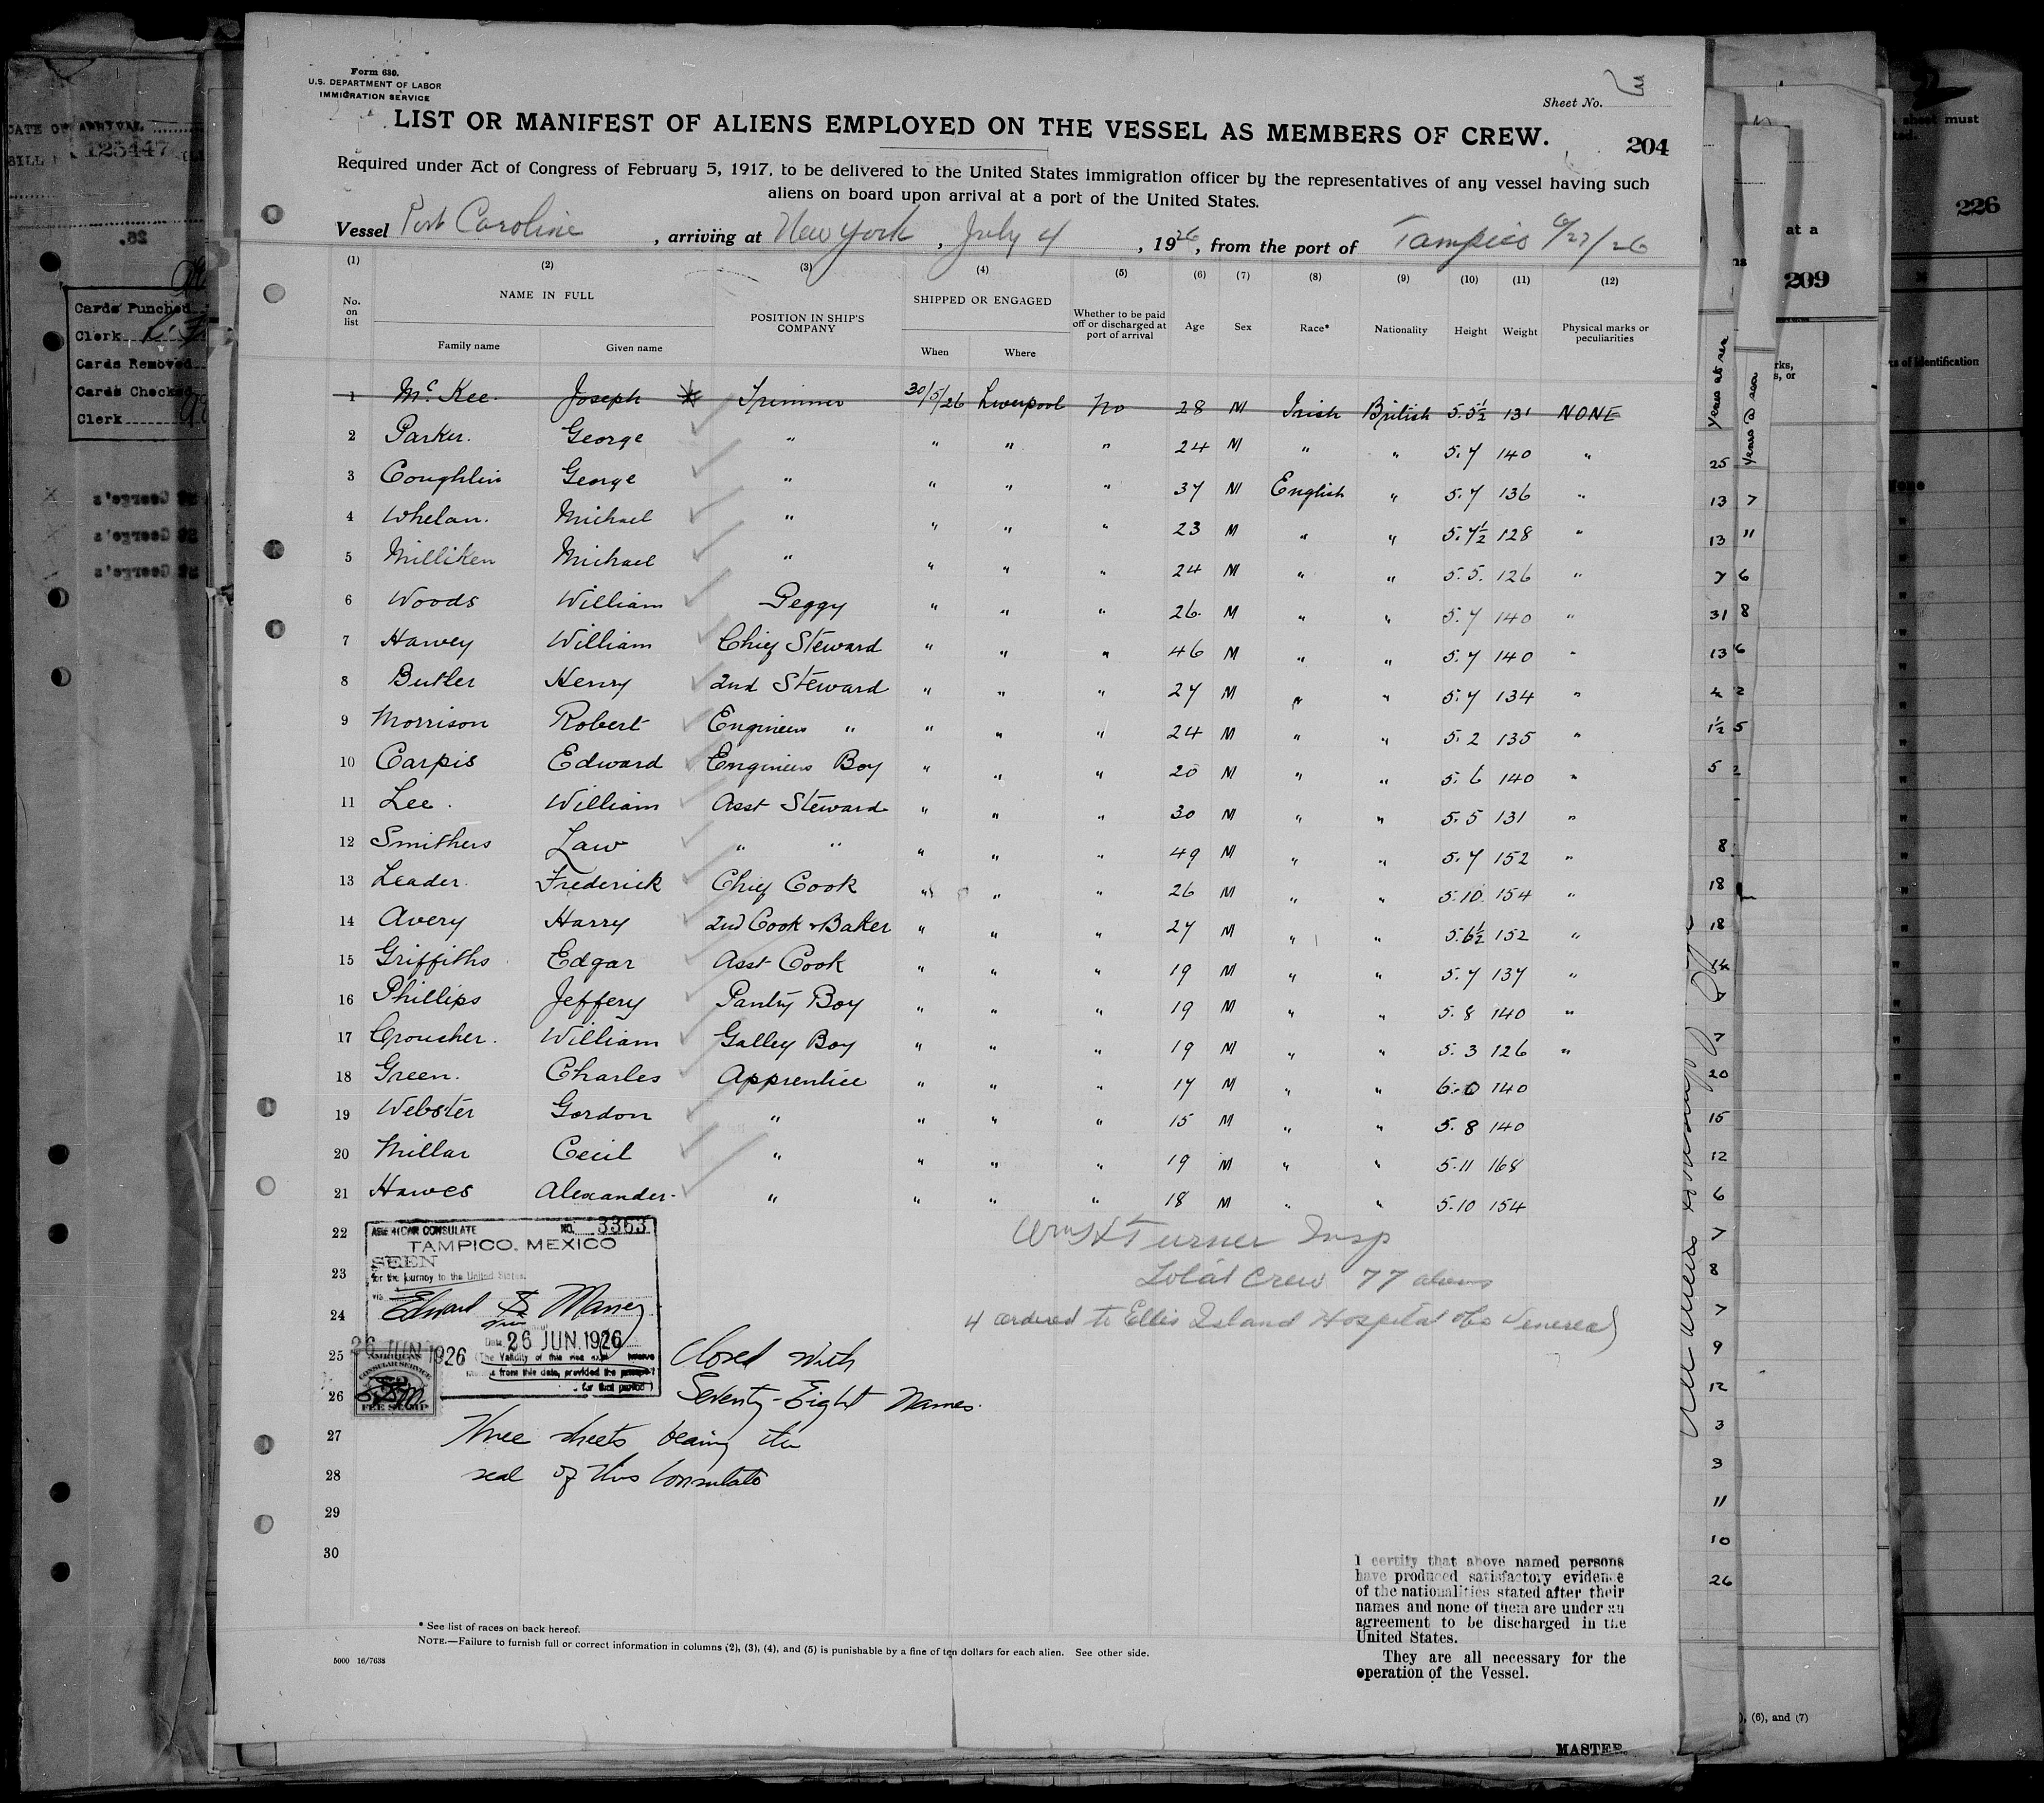 Form 680.
U.S. DEPARTMENT OF LABOR
IMMIGRATION SERVICE
Sheet No. 3
LIST OR MANIFEST OF ALIENS EMPLOYED ON THE VESSEL AS MEMBERS OF CREW.
204
Required under Act of Congress of February 5, 1917, to be delivered to the United States immigration officer by the representatives of any vessel having such
aliens on board upon arrival at a port of the United States.
Vessel Port Caroline, arriving at New York, July 4, 1926, from the port of Tampico 6/27/26
(1) (2) (3) (4) (5) (6) (7) (8) (9) (10) (11) (12)
No. on list NAME IN FULL POSITION IN SHIP'S COMPANY SHIPPED OR ENGAGED Whether to be paid off or discharged at port of arrival Age Sex Race* Nationality Height Weight Physical marks or peculiarities
Family name Given name When Where
1 McKee. Joseph * Trimmer 30/5/26 Liverpool No 28 M Irish British 5.5½ 131 NONE
2 Parker. George " " " " 24 M " " 5.7 140 "
3 Coughlin George " " " " 37 M English " 5.7 136 "
4 Whelan. Michael " " " " 23 M " " 5.7½ 128 "
5 Milliken Michael " " " " 24 M " " 5.5. 126 "
6 Woods William Peggy " " " 26. M " " 5.7 140 "
7 Harvey William Chief Steward " " " 46 M " " 5.7 140 "
8 Butler Henry 2nd Steward " " " 27 M " " 5.7 134 "
9 Morrison Robert Engineers " " " " 24 M " " 5.2 135 "
10 Carpis Edward Engineers Boy " " " 20 M " " 5.6 140 "
11 Lee. William Asst Steward " " " 30 M " " 5.5 131 "
12 Smithers Law " " " " " 49 M " " 5.7 152 "
13 Leader. Frederick Chief Cook " " " 26 M " " 5.10. 154 "
14 Avery Harry 2nd Cook & Baker " " " 27 M " " 5.6½ 152 "
15 Griffiths Edgar Asst Cook " " " 19 M " " 5.7 137 "
16 Phillips Jeffery Pantry Boy " " " 19 M " " 5.8 140 "
17 Croucher. William Galley Boy " " " 19 M " " 5.3 126 "
18 Green. Charles Apprentice " " " 17 M " " 6.0 140
19 Webster Gordon " " " " 15 M " " 5.8 140
20 Millar Cecil " " " " 19 M " " 5.11 168
21 Hawes Alexander " " " " 18 M " " 5.10 154
22
23
24
25
26
27
28
29
30
AMERICAN CONSULATE NO. 3363
TAMPICO, MEXICO
SEEN
for the journey to the United States.
via
Edward S Maney
Date 26 JUN 1926
26 JUN 1926
(The Validity of this visa
from this date, provided the passport
for that period)
AMERICAN
CONSULAR SERVICE
FEE STAMP
Wm H Turner Insp
Total Crew 77 aliens
4 ordered to Ellis Island Hospital Venereal
Closed with
Seventy-Eight Names.
Three sheets bearing the
seal of this Consulate
I certify that above named persons
have produced satisfactory evidence
of the nationalities stated after their
names and none of them are under an
agreement to be discharged in the
United States.
They are all necessary for the
operation of the Vessel.
MASTER.
* See list of races on back hereof.
NOTE.—Failure to furnish full or correct information in columns (2), (3), (4), and (5) is punishable by a fine of ten dollars for each alien. See other side.
5000 16/7638
DATE OF ARRIVAL
125447
26.
Cards Punched
Clerk
Cards Removed
Cards Checked
Clerk
George's
George's
George's
years at sea
years @ sea
25
13 7
13 11
7 6
31 8
13 6
4 2
1½ 5
5 2
8
18
18
14
7
20
15
12
6
7
8
7
9
12
3
3
11
10
26
at a
209
226
sheet must
of identification
None
), (6), and (7)